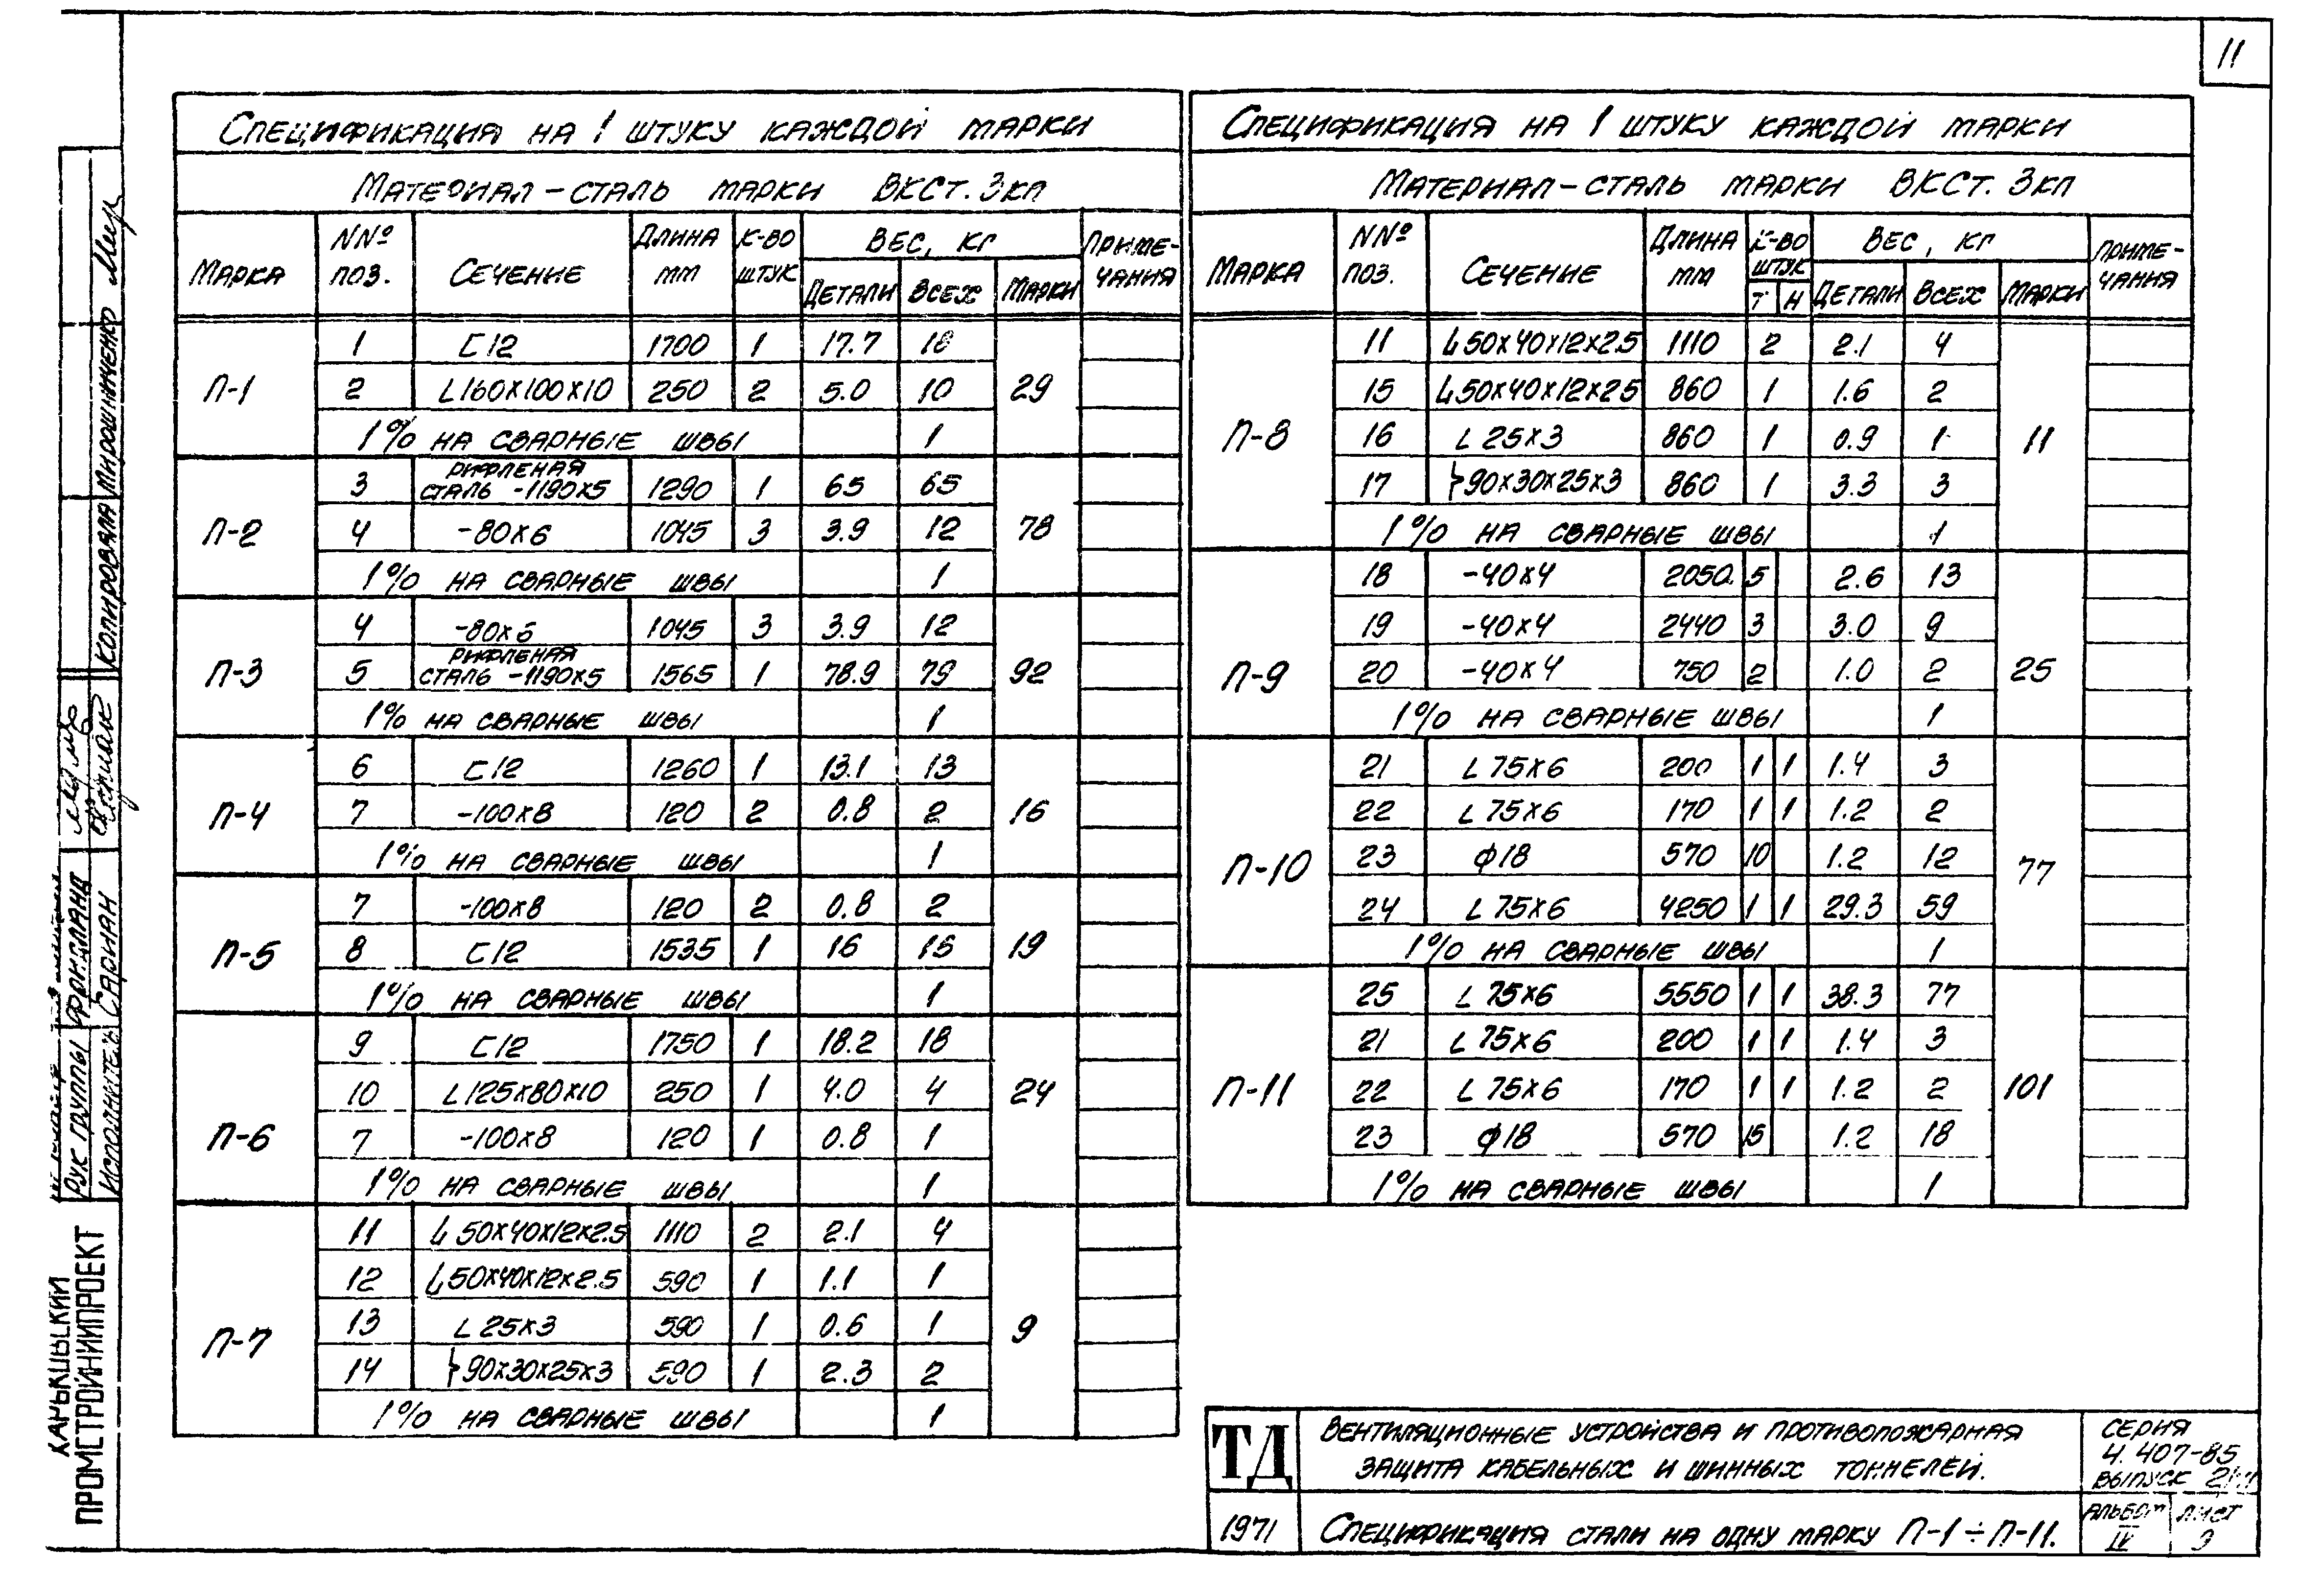 11
Спецификация на 1 штуку каждой марки
Материал – сталь марки ВКСТ. 3кп
Марка NNº поз. Сечение Длина мм К-во штук Вес, кг Примечания
Детали Всех Марки
П-1 29
1 [12 1700 1 17.7 18
2 L160x100x10 250 2 5.0 10
1% на сварные швы 1
П-2 78
3 Рифленая сталь -1190x5 1290 1 65 65
4 -80x6 1045 3 3.9 12
1% на сварные швы 1
П-3 92
4 -80x6 1045 3 3.9 12
5 Рифленая сталь -1190x5 1565 1 78.9 79
1% на сварные швы 1
П-4 16
6 [12 1260 1 13.1 13
7 -100x8 120 2 0.8 2
1% на сварные швы 1
П-5 19
7 -100x8 120 2 0.8 2
8 [12 1535 1 16 16
1% на сварные швы 1
П-6 24
9 [12 1750 1 18.2 18
10 L125x80x10 250 1 4.0 4
7 -100x8 120 1 0.8 1
1% на сварные швы 1
П-7 9
11 50x40x12x2.5 1110 2 2.1 4
12 50x40x12x2.5 590 1 1.1 1
13 L25x3 590 1 0.6 1
14 90x30x25x3 590 1 2.3 2
1% на сварные швы 1
Спецификация на 1 штуку каждой марки
Материал – сталь марки ВКСт. 3кп
Марка NNº поз. Сечение Длина мм К-во штук Вес, кг Примечания
Т Н Детали Всех Марки
П-8 11
11 50x40x12x2.5 1110 2 2.1 4
15 50x40x12x25 860 1 1.6 2
16 L25x3 860 1 0.9 1
17 90x30x25x3 860 1 3.3 3
1% на сварные швы 1
П-9 25
18 -40x4 2050 5 2.6 13
19 -40x4 2440 3 3.0 9
20 -40x4 750 2 1.0 2
1% на сварные швы 1
П-10 77
21 L75x6 200 1 1 1.4 3
22 L75x6 170 1 1 1.2 2
23 ф18 570 10 1.2 12
24 L75x6 4250 1 1 29.3 59
1% на сварные швы 1
П-11 101
25 L75x6 5550 1 1 38.3 77
21 L75x6 200 1 1 1.4 3
22 L75x6 170 1 1 1.2 2
23 ф18 570 15 1.2 18
1% на сварные швы 1
ТД
Вентиляционные устройства и противопожарная
защита кабельных и шинных тоннелей.
Серия
4.407-85
Выпуск
1971
Спецификация стали на одну марку П-1÷П-11.
Альбом IV
Лист 9
Копировала Мирошниченко
Рук группы Фридланд
Исполнитель Сариан
Харьковский
ПРОМСТРОЙНИИПРОЕКТ